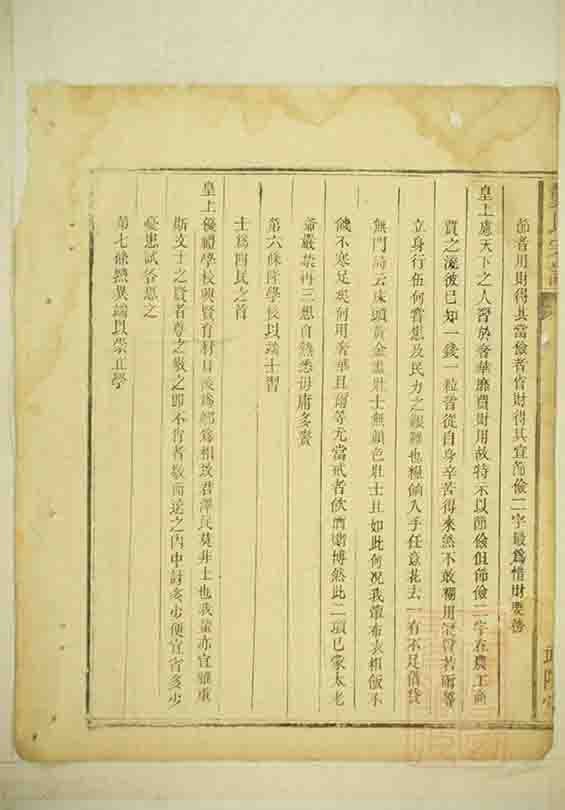 節者用財得其當儉者省財得其宜節儉二字最為惜財要務
皇上慮天下之人習於奢華靡費財用故特示以節儉但節儉二字在農工商
賈之流彼已知一錢一粒皆從自身辛苦得來然不敢糊用 若爾等
立身行伍何嘗想及民力之艱難也糧餉入手任意花去一有不足借貸
無門詩云床頭黃金盡壯士無顏色壯士且如此何况我輩布衣粗飯不
饑不寒足矣何用奢華且爾等尤當戒者飲酒賭博然此二項已蒙太老
爺嚴禁再三想自熟悉毋庸多贅
第六條隆學校以端士習
士為四民之首
皇上優禮學校興賢育材日後為卿為相致君澤民莫非士也我輩亦宜雅重
斯文士之賢者尊之敬之即不肖者敬而遠之內中討多少便宜省多少
憂患試各思之
第七條黜異端以崇正學